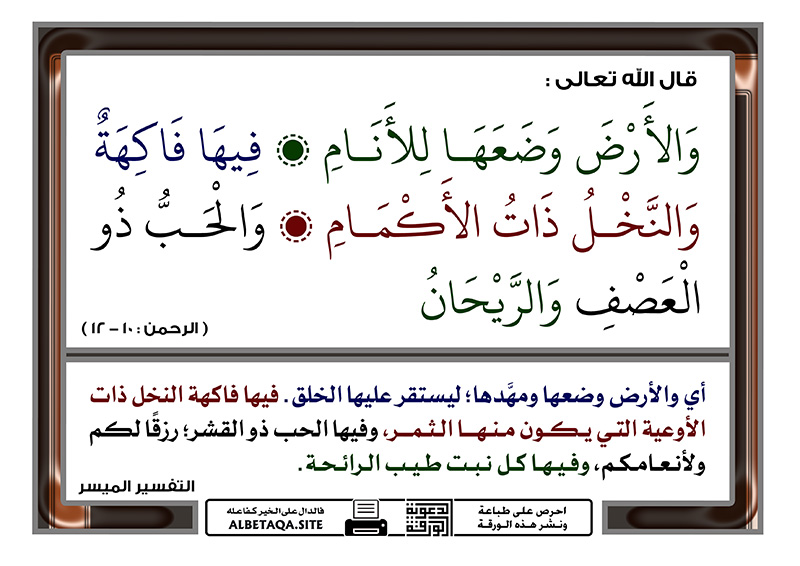 قال الله تعالى :
وَالأَرْضَ وَضَعَهَا لِلأَنَامِ ۝ فِيهَا فَاكِهَةٌ
وَالنَّخْلُ ذَاتُ الأَكْمَامِ ۝ وَالْحَبُّ ذُو
الْعَصْفِ وَالرَّيْحَانُ
( الرحمن : ١٠ - ١٢ )
أي والأرض وضعها ومهَّدها؛ ليستقر عليها الخلق. فيها فاكهة النخل ذات
الأوعية التي يكون منها الثمر، وفيها الحب ذو القشر؛ رزقًا لكم
ولأنعامكم، وفيها كل نبت طيب الرائحة.
التفسير الميسر
احرص على طباعة
ونشر هذه الورقة
الدعوية
الورقة
فالدال على الخير كفاعله
ALBETAQA.SITE